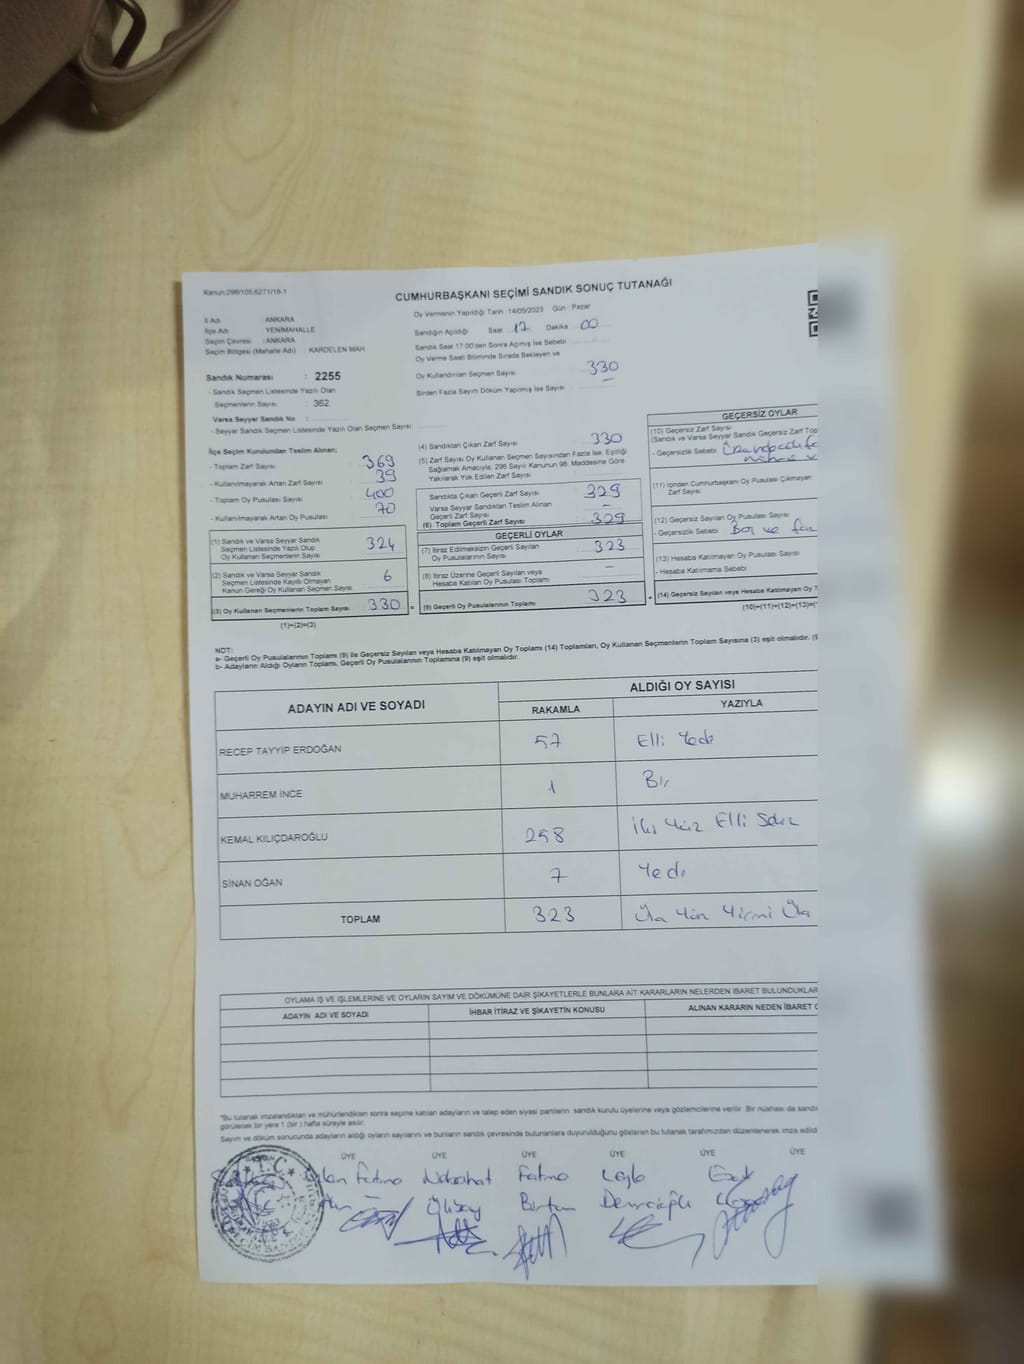 Kanun:298/105.6271/18-1
CUMHURBAŞKANI SEÇİMİ SANDIK SONUÇ TUTANAĞI
İl Adı : ANKARA
İlçe Adı : YENİMAHALLE
Seçim Çevresi : ANKARA
Seçim Bölgesi (Mahalle Adı) : KARDELEN MAH.
Sandık Numarası : 2255
- Sandık Seçmen Listesinde Yazılı Olan
Seçmenlerin Sayısı : 362
Varsa Seyyar Sandık No :
- Seyyar Sandık Seçmen Listesinde Yazılı Olan Seçmen Sayısı :
Oy Vermenin Yapıldığı Tarih : 14/05/2023 Gün : Pazar
Sandığın Açıldığı Saat 17 Dakika 00
Sandık Saat 17:00'den Sonra Açılmış İse Sebebi :
Oy Verme Saati Bitiminde Sırada Bekleyen ve
Oy Kullandırılan Seçmen Sayısı 330
Birden Fazla Sayım Döküm Yapılmış İse Sayısı : –
İlçe Seçim Kurulundan Teslim Alınan;
- Toplam Zarf Sayısı : 369
- Kullanılmayarak Artan Zarf Sayısı : 39
- Toplam Oy Pusulası Sayısı : 400
- Kullanılmayarak Artan Oy Pusulası : 70
(1) Sandık ve Varsa Seyyar Sandık
Seçmen Listesinde Yazılı Olup
Oy Kullanan Seçmenlerin Sayısı 324
(2) Sandık ve Varsa Seyyar Sandık
Seçmen Listesinde Kayıtlı Olmayan
Kanun Gereği Oy Kullanan Seçmen Sayısı 6
(3) Oy Kullanan Seçmenlerin Toplam Sayısı 330 =
(1)+(2)=(3)
(4) Sandıktan Çıkan Zarf Sayısı 330
(5) Zarf Sayısı Oy Kullanan Seçmen Sayısından Fazla İse, Eşitliği
Sağlamak Amacıyla, 298 Sayılı Kanunun 98. Maddesine Göre
Yakılarak Yok Edilen Zarf Sayısı
Sandıkta Çıkan Geçerli Zarf Sayısı 329
Varsa Seyyar Sandıktan Teslim Alınan
Geçerli Zarf Sayısı –
(6) Toplam Geçerli Zarf Sayısı 329
GEÇERLİ OYLAR
(7) İtiraz Edilmeksizin Geçerli Sayılan
Oy Pusulalarının Sayısı 323
(8) İtiraz Üzerine Geçerli Sayılan veya
Hesaba Katılan Oy Pusulası Toplamı –
(9) Geçerli Oy Pusulalarının Toplamı 323 +
GEÇERSİZ OYLAR
(10) Geçersiz Zarf Sayısı
(Sandık ve Varsa Seyyar Sandık Geçersiz Zarf Top
- Geçersizlik Sebebi
(11) İçinden Cumhurbaşkanı Oy Pusulası Çıkmayan
Zarf Sayısı
(12) Geçersiz Sayılan Oy Pusulası Sayısı
- Geçersizlik Sebebi : Boş ve
(13) Hesaba Katılmayan Oy Pusulası Sayısı
- Hesaba Katılmama Sebebi
(14) Geçersiz Sayılan veya Hesaba Katılmayan Oy T
(10)+(11)+(12)+(13)=(
NOT:
a- Geçerli Oy Pusulalarının Toplamı (9) ile Geçersiz Sayılan veya Hesaba Katılmayan Oy Toplamı (14) Toplamları, Oy Kullanan Seçmenlerin Toplam Sayısına (3) eşit olmalıdır. (
b- Adayların Aldığı Oyların Toplamı, Geçerli Oy Pusulalarının Toplamına (9) eşit olmalıdır.
ADAYIN ADI VE SOYADI
ALDIĞI OY SAYISI
RAKAMLA YAZIYLA
RECEP TAYYİP ERDOĞAN 57 Elli Yedi
MUHARREM İNCE 1 Bir
KEMAL KILIÇDAROĞLU 258 İki Yüz Elli Sekiz
SİNAN OĞAN 7 Yedi
TOPLAM 323 Üç Yüz Yirmi Üç
OYLAMA İŞ VE İŞLEMLERİNE VE OYLARIN SAYIM VE DÖKÜMÜNE DAİR ŞİKAYETLERLE BUNLARA AİT KARARLARIN NELERDEN İBARET BULUNDUKLAR
ADAYIN ADI VE SOYADI İHBAR İTİRAZ VE ŞİKAYETİN KONUSU ALINAN KARARIN NEDEN İBARET O
*Bu tutanak imzalandıktan ve mühürlendikten sonra seçime katılan adayların ve talep eden siyasi partilerin sandık kurulu üyelerine veya gözlemcilerine verilir. Bir nüshası da sandı
görülecek bir yere 1 (bir) hafta süreyle asılır.
Sayım ve döküm sonucunda adayların aldığı oyların sayılarını ve bunların sandık çevresinde bulunanlara duyurulduğunu gösteren bu tutanak tarafımızdan düzenlenerek imza edild
ÜYE ÜYE ÜYE ÜYE ÜYE ÜYE
Fatma Fatma Leyla
Demircioğlu
T.C.